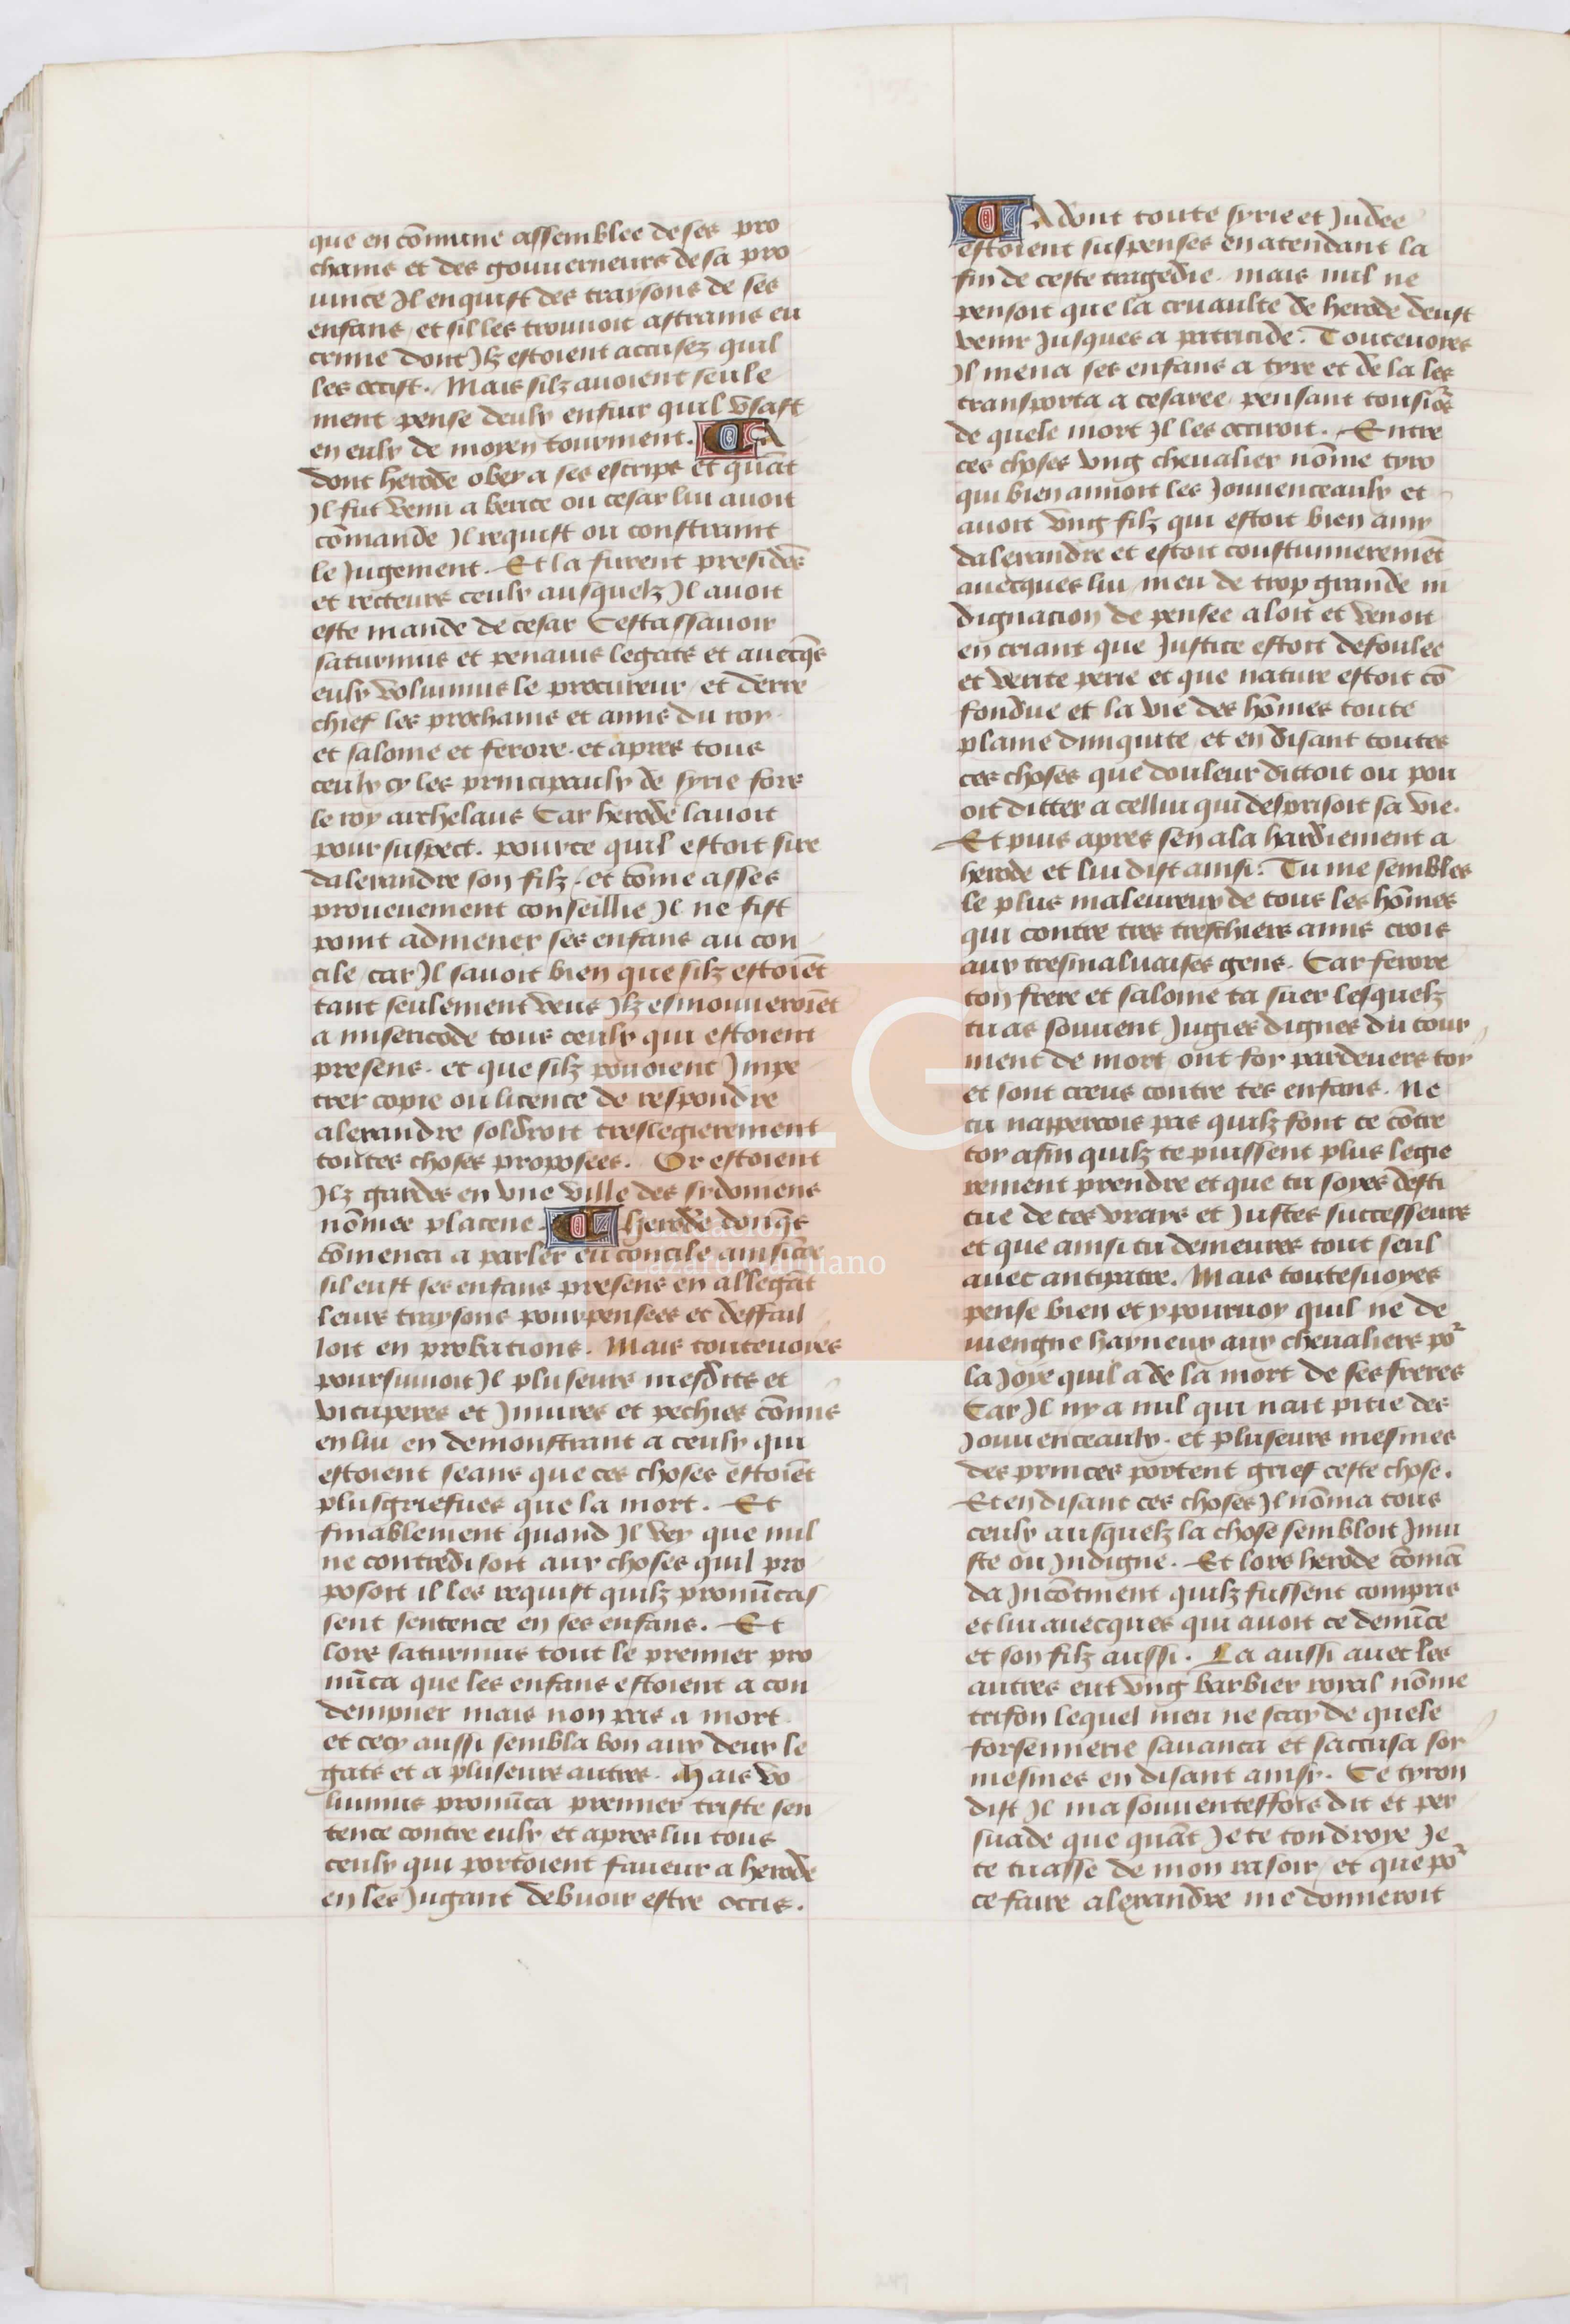 que en cõmune assemblee de ses pro
chains et des gouuerneurs de sa pro
uince Il enquist des traysons de ses
enfans / et sil les trouuoit astrains en
crime dont Ilz estoient accusez quil
les occist. Mais silz auoient seule
ment pense deulx enfuir quil vsast
en eulx de moyen tourment. A
dont herode obey a ses escrips et quãt
Il fut venu a berice ou cesar lui auoit
cõmande Il requist ou constraint
le Jugement. Et la furent presidẽs
et recteurs ceulx ausquelz Il auoit
este mande de cesar Cestassauoir
saturnius et penaius legats et auecq̃s
eulx volumius le procureur / et derre
chief les prochains et amis du roy
et salome et ferore. et apres tous
ceulx cy les principaulx de syrie fors
le roy archelaus Car herode lauoit
pour suspect. pource quil estoit sire
dalexandre son filz. et cõme asses
proueuement conseillie Il ne fist
point admener ses enfans au con
cile / car Il sauoit bien que silz estoiẽt
tant seulement veus Ilz esmouueroiẽt
a misericode tous ceulx qui estoient
presens. et que silz pouoient Impe
trer copie ou licence de respondre
alexandre soldroit treslegierement
toutes choses proposees. Or estoient
Ilz gardes en vne ville des sydomens
nõmee platene. herode donq̃s
cõmenca a parler en concile ainsi cõe
sil eust ses enfans presens en allegãt
leurs traysons pourpensees et deffail
loit en probations. Mais touteuoies
poursuiuoit Il pluseurs mesdits et
vituperes et Iniures et pechies cõmis
en lui en demonstrant a ceulx qui
estoient seans que ces choses estoiẽt
plusgriefues que la mort. Et
finablement quand Il vey que nul
ne contredisoit aux choses quil pro
posoit il les requist quilz pronũcas
sent sentence en ses enfans. Et
lors saturnius tout le premier pro
nũca que les enfans estoient a con
dempner mais non pas a mort
et cecy aussi sembla bon aux deux le
gats et a pluseurs autres. Mais vo
lumius pronũca premier triste sen
tence contre eulx et apres lui tous
ceulx qui portoient faueur a herode
en les Jugant debuoir estre occis.
Adont toute syrie et Judee
estoient suspenses en atendant la
fin de ceste tragedie. mais nul ne
pensoit que la cruaulte de herode deust
venir Jusques a patricide. Touteuoies
Il mena ses enfans a tyre et de la les
transporta a cesaree / pensant tousiõrs
de quele mort Il les occiroit. Entre
ces choses vng cheualier nõme tyro
qui bien amoit les Jouuenceaulx et
auoit vng filz qui estoit bien amy
dalexandre et estoit coustumieremẽt
auecques lui / meu de trop grande in
dignacion de pensee aloit et venoit
en criant que Justice estoit defoulee
et verite perie et que nature estoit cõ
fondue et la vie des hõmes toute
plaine diniquite / et en disant toutes
ces choses que douleur dittoit ou pou
oit ditter a cellui qui desprisoit sa vie.
Et puis apres sen ala hardiement a
herode et lui dist ainsi. Tu me sembles
le plus maleureux de tous les hõmes
qui contre tres treschiers amis crois
aux tresmaluaises gens. Car ferore
ton frere et salome ta suer lesquelz
tu as souuent Jugies dignes du tour
ment de mort / ont foy pardeuers toy
et sont creus contre tes enfans. Ne
tu nappercois pas quilz font ce cõtre
toy afin quilz te puissent plus legie
rement prendre et que tu soyes desti
tue de tes vrays et Justes successeurs
et que ainsi tu demeures tout seul
auec antipatre. Mais toutesuoyes
pense bien et y pouruoy quil ne de
uiengne hayneux aux cheualiers põ
la Joye quil a de la mort de ses freres
Car Il ny a nul qui nait pitie des
Jouuenceaulx. et pluseurs mesmes
des princes portent grief ceste chose.
Et en disant ces choses Il nõma tous
ceulx ausquelz la chose sembloit Iniu
ste ou Indigne. Et lors herode cõmã
da Incõtinent quilz fussent compris
et lui auecques qui auoit ce denũce
et son filz aussi. La aussi auec les
autres eut vng barbier royal nõme
trifon lequel meu ne scay de quele
forsennerie sauanca et saccusa soy
mesmes en disant ainsy. Ce tyron
dist Il ma souuenteffois dit et per
suade que quãt Je te tondroye Je
te tuasse de mon rasoir / et que põ
ce faire alexandre me donneroit
Fundación
Lázaro Galdiano
LG